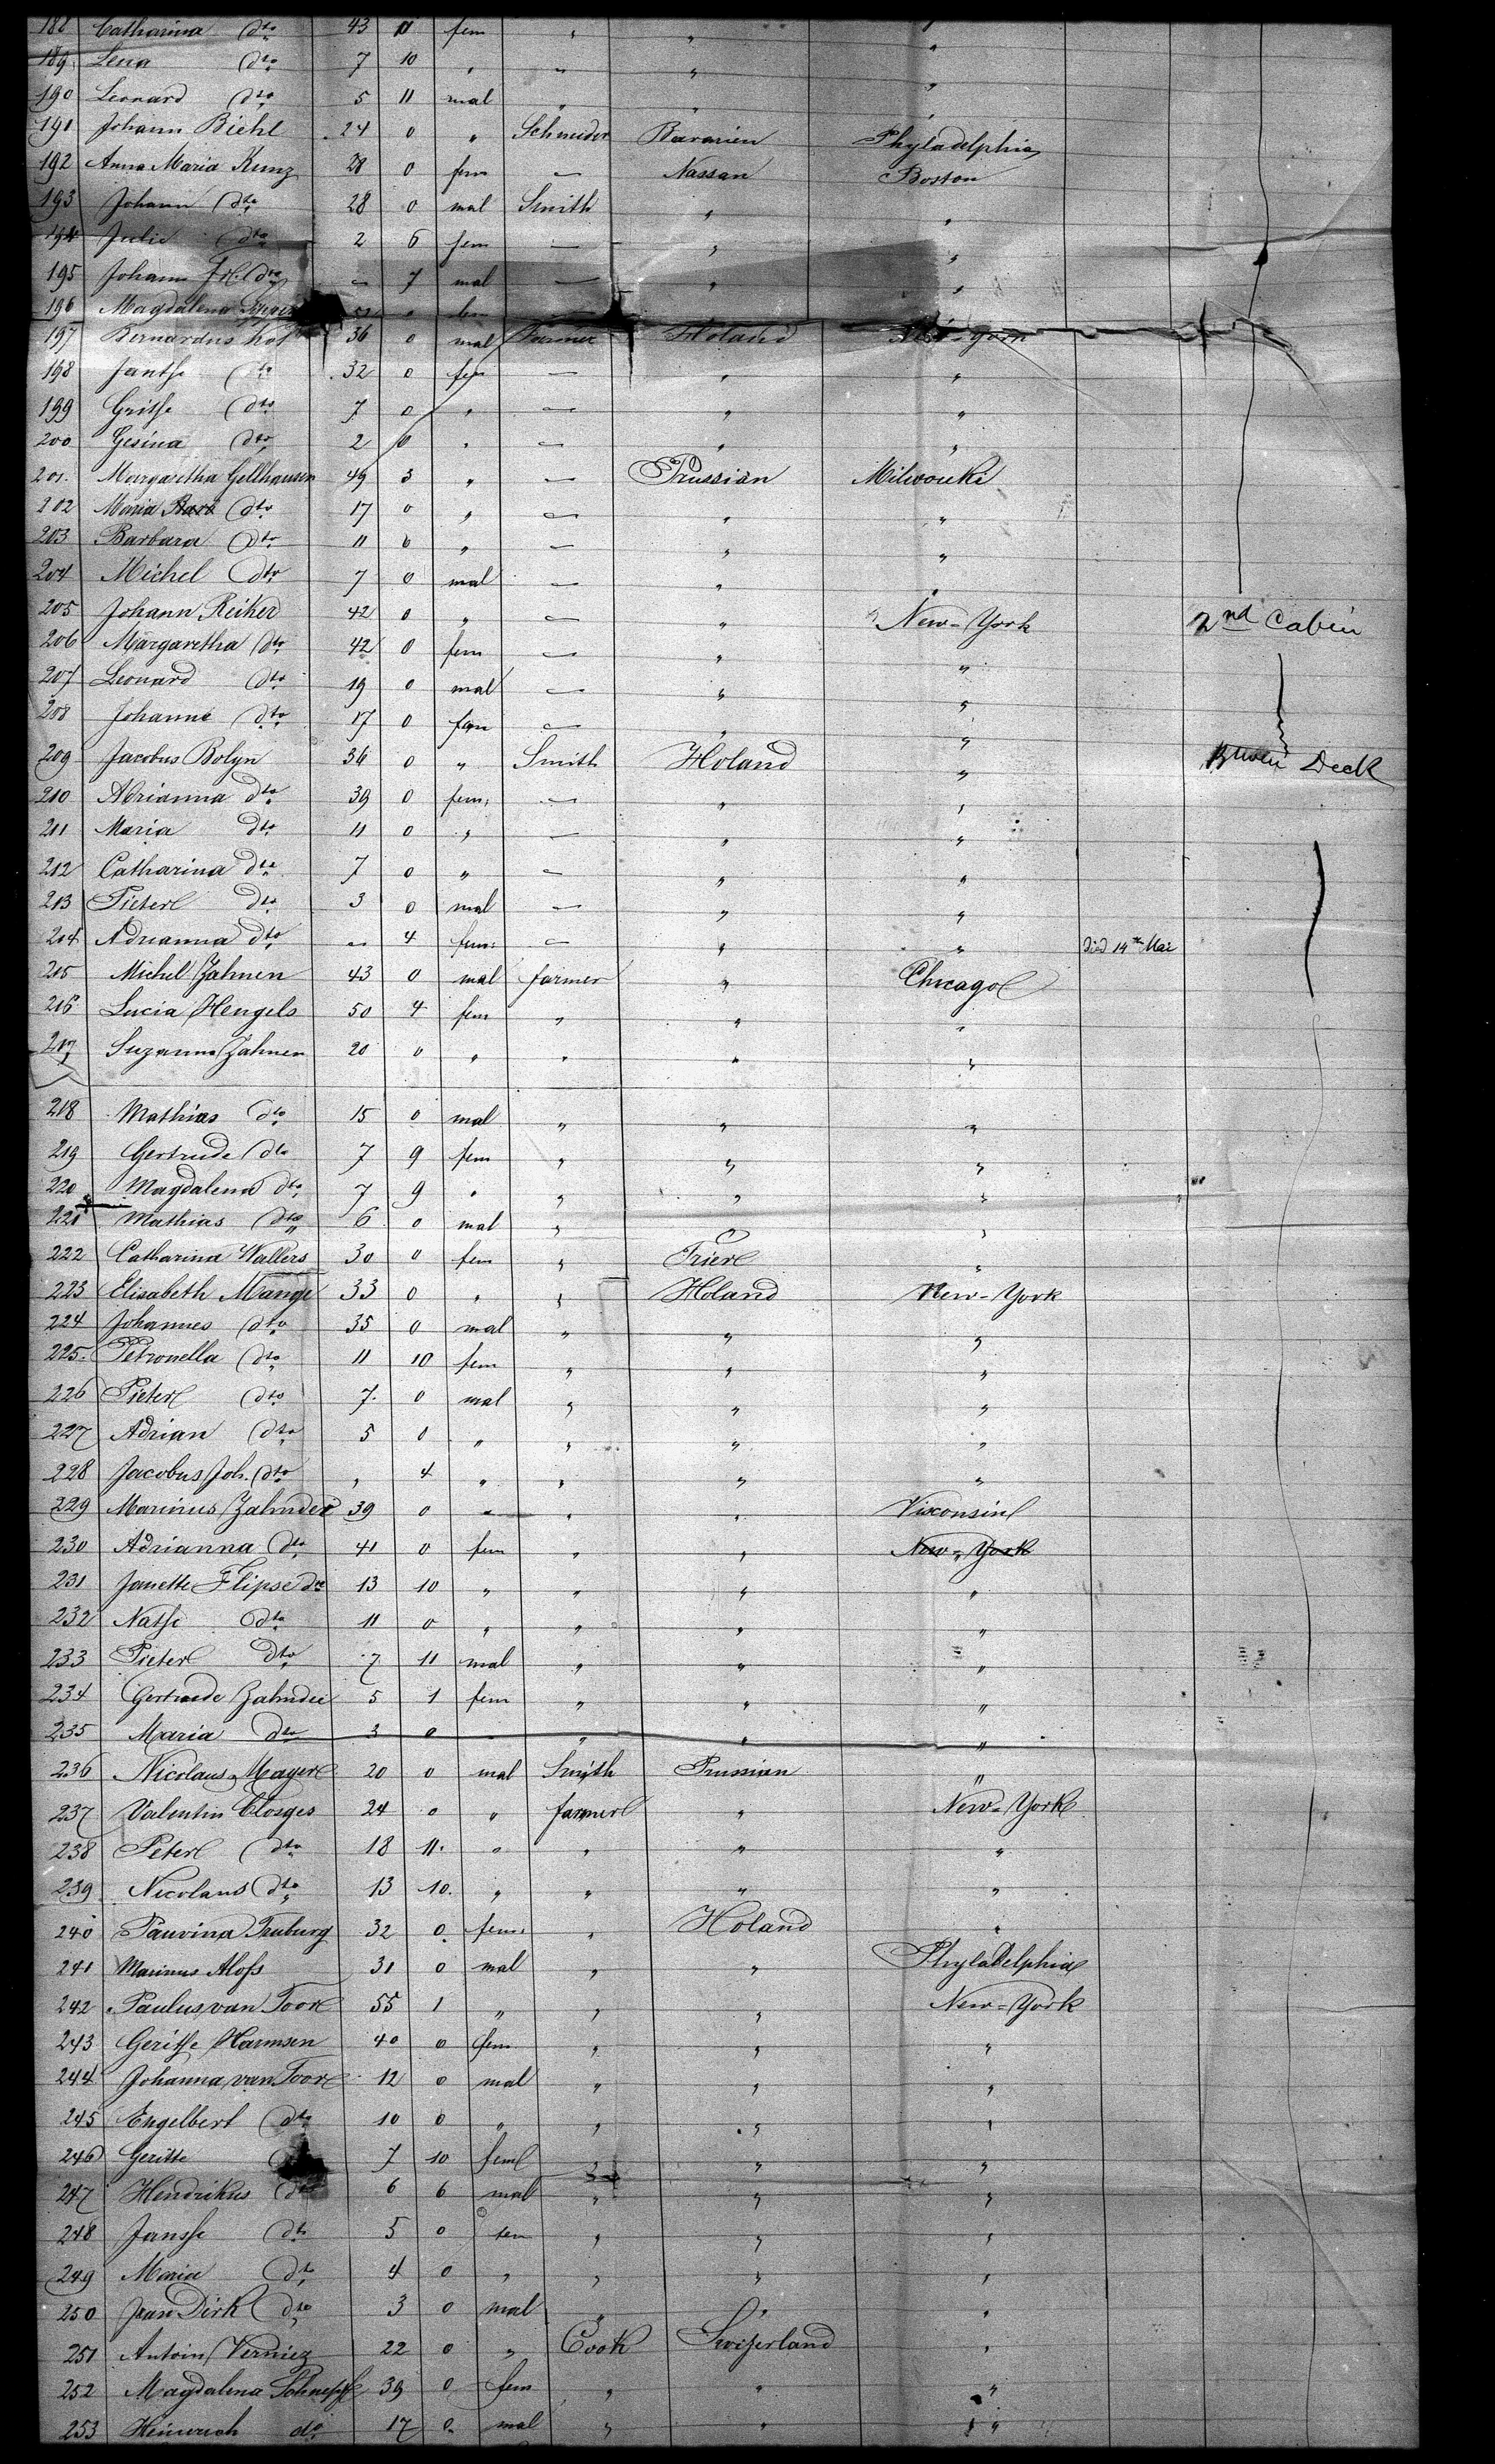 188 Catharina dto 43 0 fem " " "
189 Lena dto 7 10 " " " "
190 Leonard dto 5 11 mal " " "
191 Johann Biehl 24 0 " Schneider Bavarien Phyladelphia
192 Anna Maria Kunz 28 0 fem — Nassau Boston
193 Johann dto 28 0 mal Smith " "
194 Julie dto 2 6 fem — " "
195 Johann dto — 7 mal — " "
196 Magdalena 0 fem —
197 Bernardus Hof 36 0 mal Farmer Holand New-York
198 Jantje dto 32 0 fem — " "
199 Gritje dto 7 0 " — " "
200 Gesina dto 2 0 " — " "
201. Margaretha Gellhausen 49 3 " — Prussian Milwouki
202 Maria dto 17 0 " — " "
203 Barbara dto 11 0 " — " "
204 Michel dto 7 0 mal — " "
205 Johann Reiker 42 0 " — " New-York 2nd Cabin
206 Margaretha dto 42 0 fem — " "
207 Leonard dto 19 0 mal — " "
208 Johanne dto 17 0 fem — " "
209 Jacobus Bolyn 36 0 " Smith Holand " Deck
210 Adrianna dto 39 0 fem: — " "
211 Maria dto 11 0 " — " "
212 Catharina dto 7 0 " — " "
213 Pieter dto 3 0 mal — " "
214 Adrianna dto — 4 fem: — " " Died 14th Mai
215 Michel Zahnen 43 0 mal farmer " Chicago
216 Lucia Hengels 50 4 fem " " "
217 Suzanna Zahnen 20 0 " " " "
218 Mathias dto 15 0 mal " " "
219 Gertrude dto 7 9 fem " " "
220 Magdalena dto 7 9 " " " "
221 Mathias dto 6 0 mal " " "
222 Catharina Wallers 30 0 fem " Trier "
223 Elisabeth Mange 33 0 " " Holand New-York
224 Johannes dto 35 0 mal " " "
225. Petronella dto 11 10 fem " " "
226 Pieter dto 7. 0 mal " " "
227 Adrian dto 5 0 " " " "
228 Jacobus Joh. dto " 4 " " " "
229 Marinus Zahnder 39 0 " " " Visconsin
230 Adrianna dto 41 0 fem " " New-York
231 Janette Flipse dto 13 10 " " " "
232 Natje dto 11 0 " " " "
233 Pieter dto 7 11 mal " " "
234 Gertrude Zahnder 5 1 fem " " "
235 Maria dto 3 0 " " " "
236 Nicolaus Mayer 20 0 mal Smith Prussian "
237 Valentin Closges 24 0 " farmer " New-York
238 Peter dto 18 11. " " " "
239 Nicolaus dto 13 10. " " " "
240 Pauvina Truburg 32 0. fem: " Holand "
241 Marinus Alofs 31 0 mal " " Phyladelphia
242 Paulus van Toor 55 1 " " " New-York
243 Geritje Harmsen 40 0 fem " " "
244 Johanna van Toor 12 0 mal " " "
245 Engelbert dto 10 0 " " " "
246 Geritte 7 10 fem " " "
247 Hendrikus dto 6 6 mal " " "
248 Jansje dto 5 0 fem " " "
249 Maria dto 4 0 " " " "
250 Jean Dirk dto 3 0 mal " " "
251 Antoin Verniez 22 0 " Cook Swizerland "
252 Magdalena 39 0 fem " " "
253 Heinrich do 17 0. mal " " "